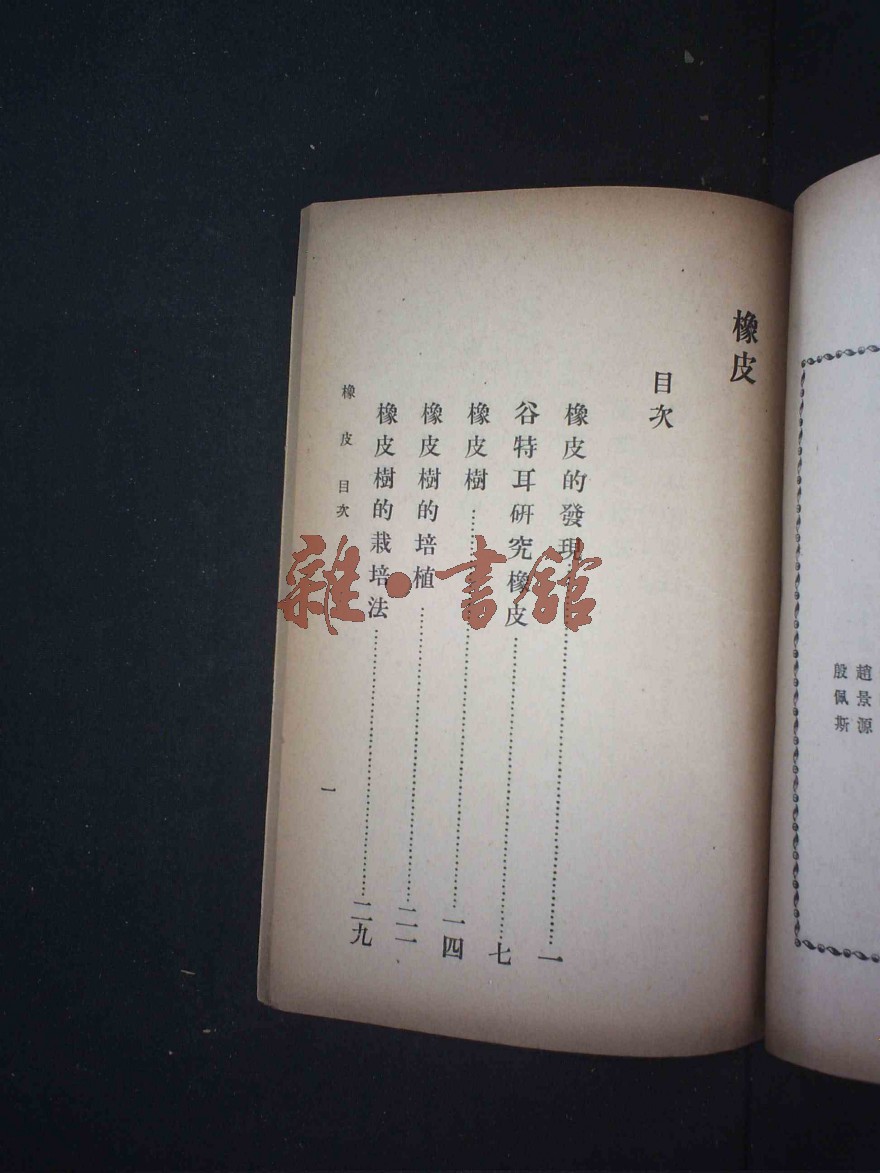 趙景源
殷佩斯
橡皮
目次
橡皮的發現……一
谷特耳研究橡皮……七
橡皮樹……一四
橡皮樹的培植……二一
橡皮樹的栽培法……二九
橡皮 目次
一
雜·書舘